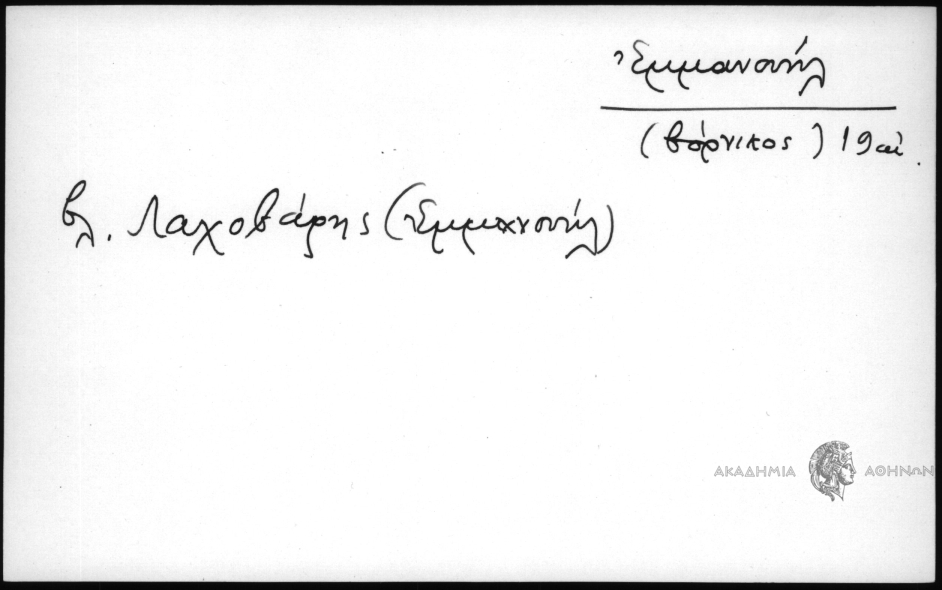 Ἐμμανουήλ
(βόρνικος) 19 αἰ.
βλ. Λαχοβάρης (Ἐμμανουήλ)
ΑΚΑΔΗΜΙΑ ΑΘΗΝΩΝ